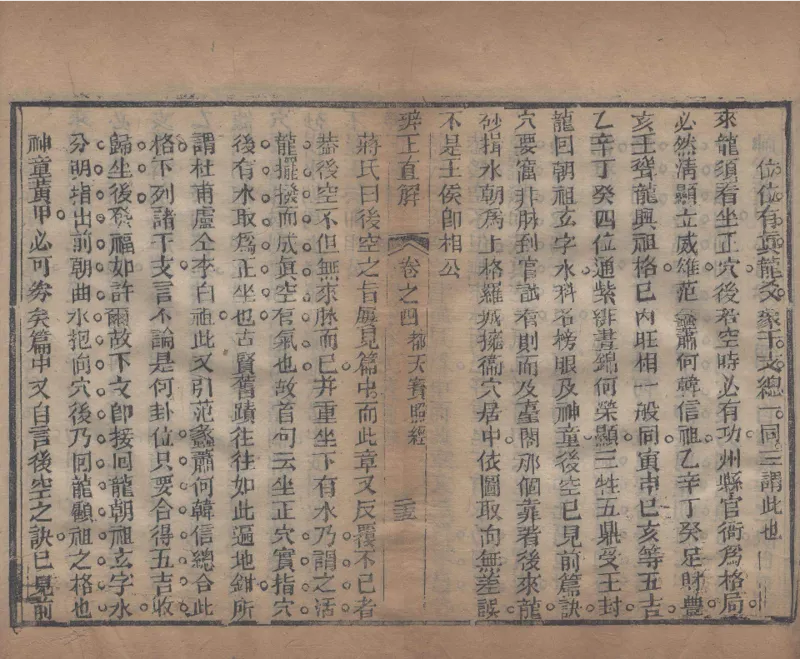 位位有眞龍爻象干支總一同三謂此也
來龍須看坐正穴後若空時必有功州縣官衙爲格局
必然淸顯立威雄范蠡蕭何韓信祖乙辛丁癸足財豐
亥壬聳龍興祖格巳丙旺相一般同寅申巳亥等五吉
乙辛丁癸四位通紫緋晝錦何榮顯三牲五鼎受王封
龍回朝祖玄字水科名榜眼及神童後空已見前篇訣
穴要窩鉗脉到宮試看州衙及臺閣那個靠著後來龍
砂揖水朝爲上格羅城擁衞穴居中依圖取向無差誤
不是王侯卽相公
辨正直解
卷之四
都天寶照經
三
蔣氏曰後空之旨屢見篇中而此章又反覆不已者
葢後空不但無來脉而已并重坐下有水乃謂之活
龍擺撥而成眞空有氣也故首句云坐正穴實指穴
後有水取爲正坐也古賢舊蹟往往如此遍地鉗所
謂杜甫盧仝李白祖此又引范蠡蕭何韓信總合此
格下列諸干支言不論是何卦位只要合得五吉收
歸坐後發福如許爾故下文卽接回龍朝祖玄字水
分明指出前朝曲水抱向穴後乃回龍顧祖之格也
神童黃甲必可券矣篇中又自言後空之訣已見前